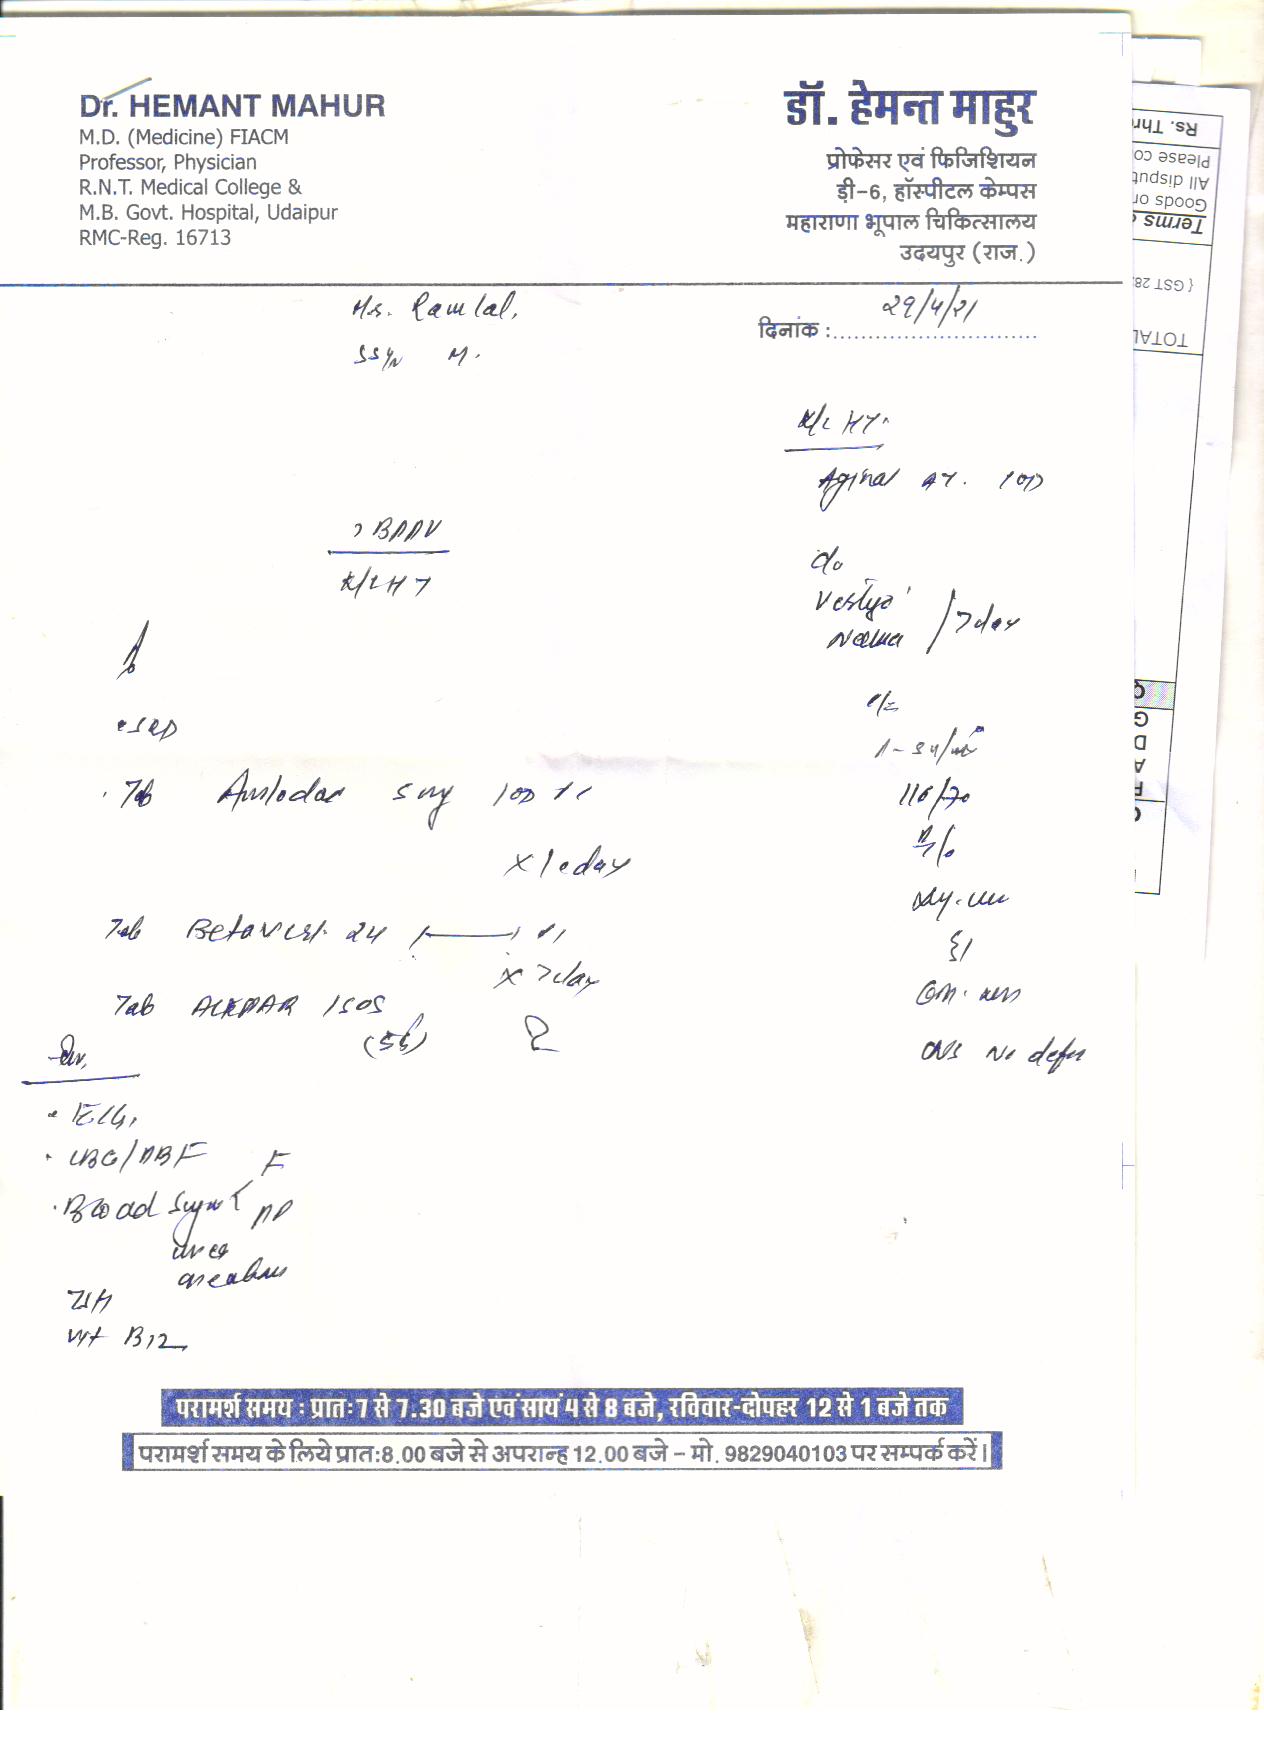 Dr. HEMANT MAHUR
M.D. (Medicine) FIACM
Professor, Physician
R.N.T. Medical College &
M.B. Govt. Hospital, Udaipur
RMC-Reg. 16713
डॉ. हेमन्त माहुर
प्रोफेसर एवं फिजिशियन
डी-6, हॉस्पीटल केम्पस
महाराणा भूपाल चिकित्सालय
उदयपुर (राज.)
Ramlal,
दिनांक : 29/4/21
M.
K/c HT.
AT. 1OD
? BPPV
K/c HT
c/o
Vertigo
Nausea / 7 day
116/70
Tab Amlodac 5mg 1OD
x 10 day
Tab Betavert 24
x 7 day
Tab 1 SOS
CNS No
ECG,
CBC/PBF
Blood Sugar F
PP
urea
creatinine
TSH
Vit B12
परामर्श समय : प्रातः 7 से 7.30 बजे एवं सायं 4 से 8 बजे, रविवार-दोपहर 12 से 1 बजे तक
परामर्श समय के लिये प्रात:8.00 बजे से अपरान्ह 12.00 बजे – मो. 9829040103 पर सम्पर्क करें।
Rs. Thr
Please co
All disput
Goods or
Terms
( GST 28.
TOTAL